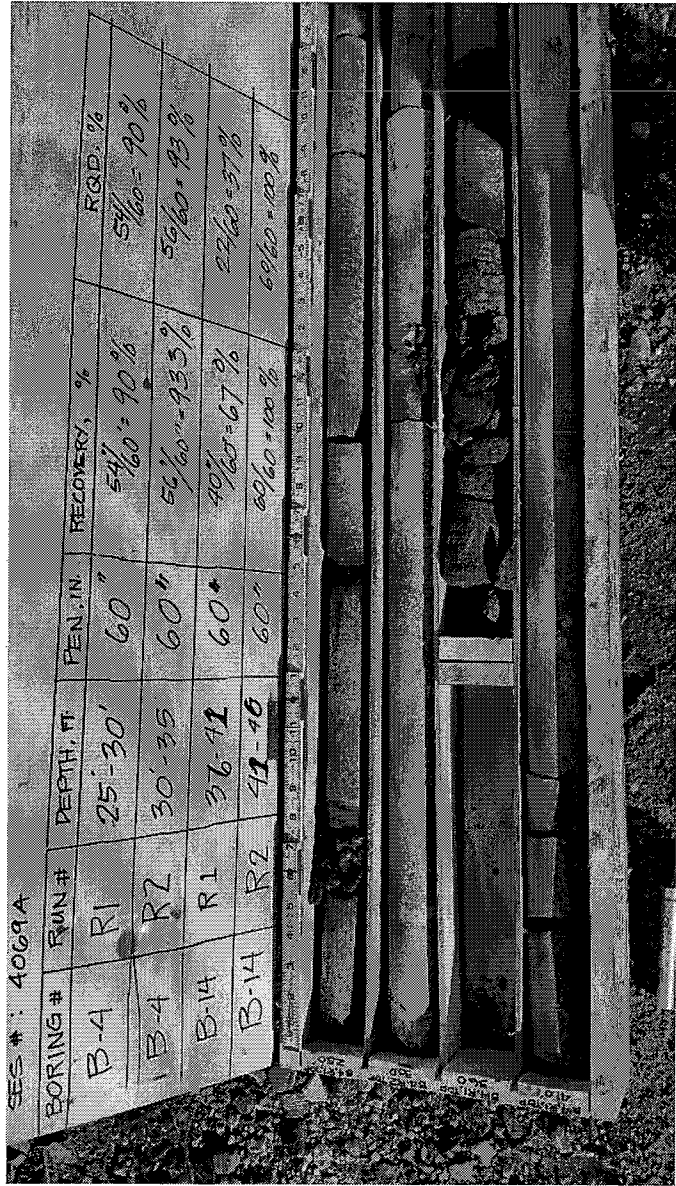 SES #: 4069A
BORING # RUN # DEPTH, FT. PEN, IN. RECOVERY, % RQD, %
B-4 R1 25'-30' 60" 54"/60 = 90% 54/60 = 90%
B-4 R2 30'-35 60" 56"/60" = 93.3% 56/60 = 93%
B-14 R1 36-41 60" 40"/60" = 67% 22/60 = 37%
B-14 R2 41-46 60" 60/60 = 100% 60/60 = 100%